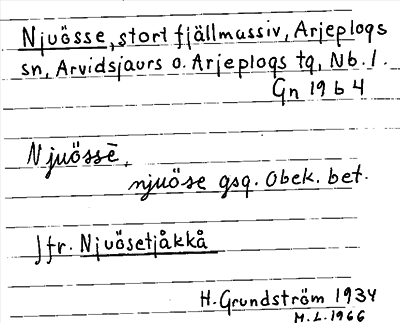 Njuösse, stort fjällmassiv, Arjeplogs
sn, Arvidsjaurs o. Arjeplogs tg, Nb. l.
Gn 19 b 4
Njuössē,
njuöse gsg. Obek. bet.
Jfr. Njuösetjåkkå
H. Grundström 1934
M.L. 1966